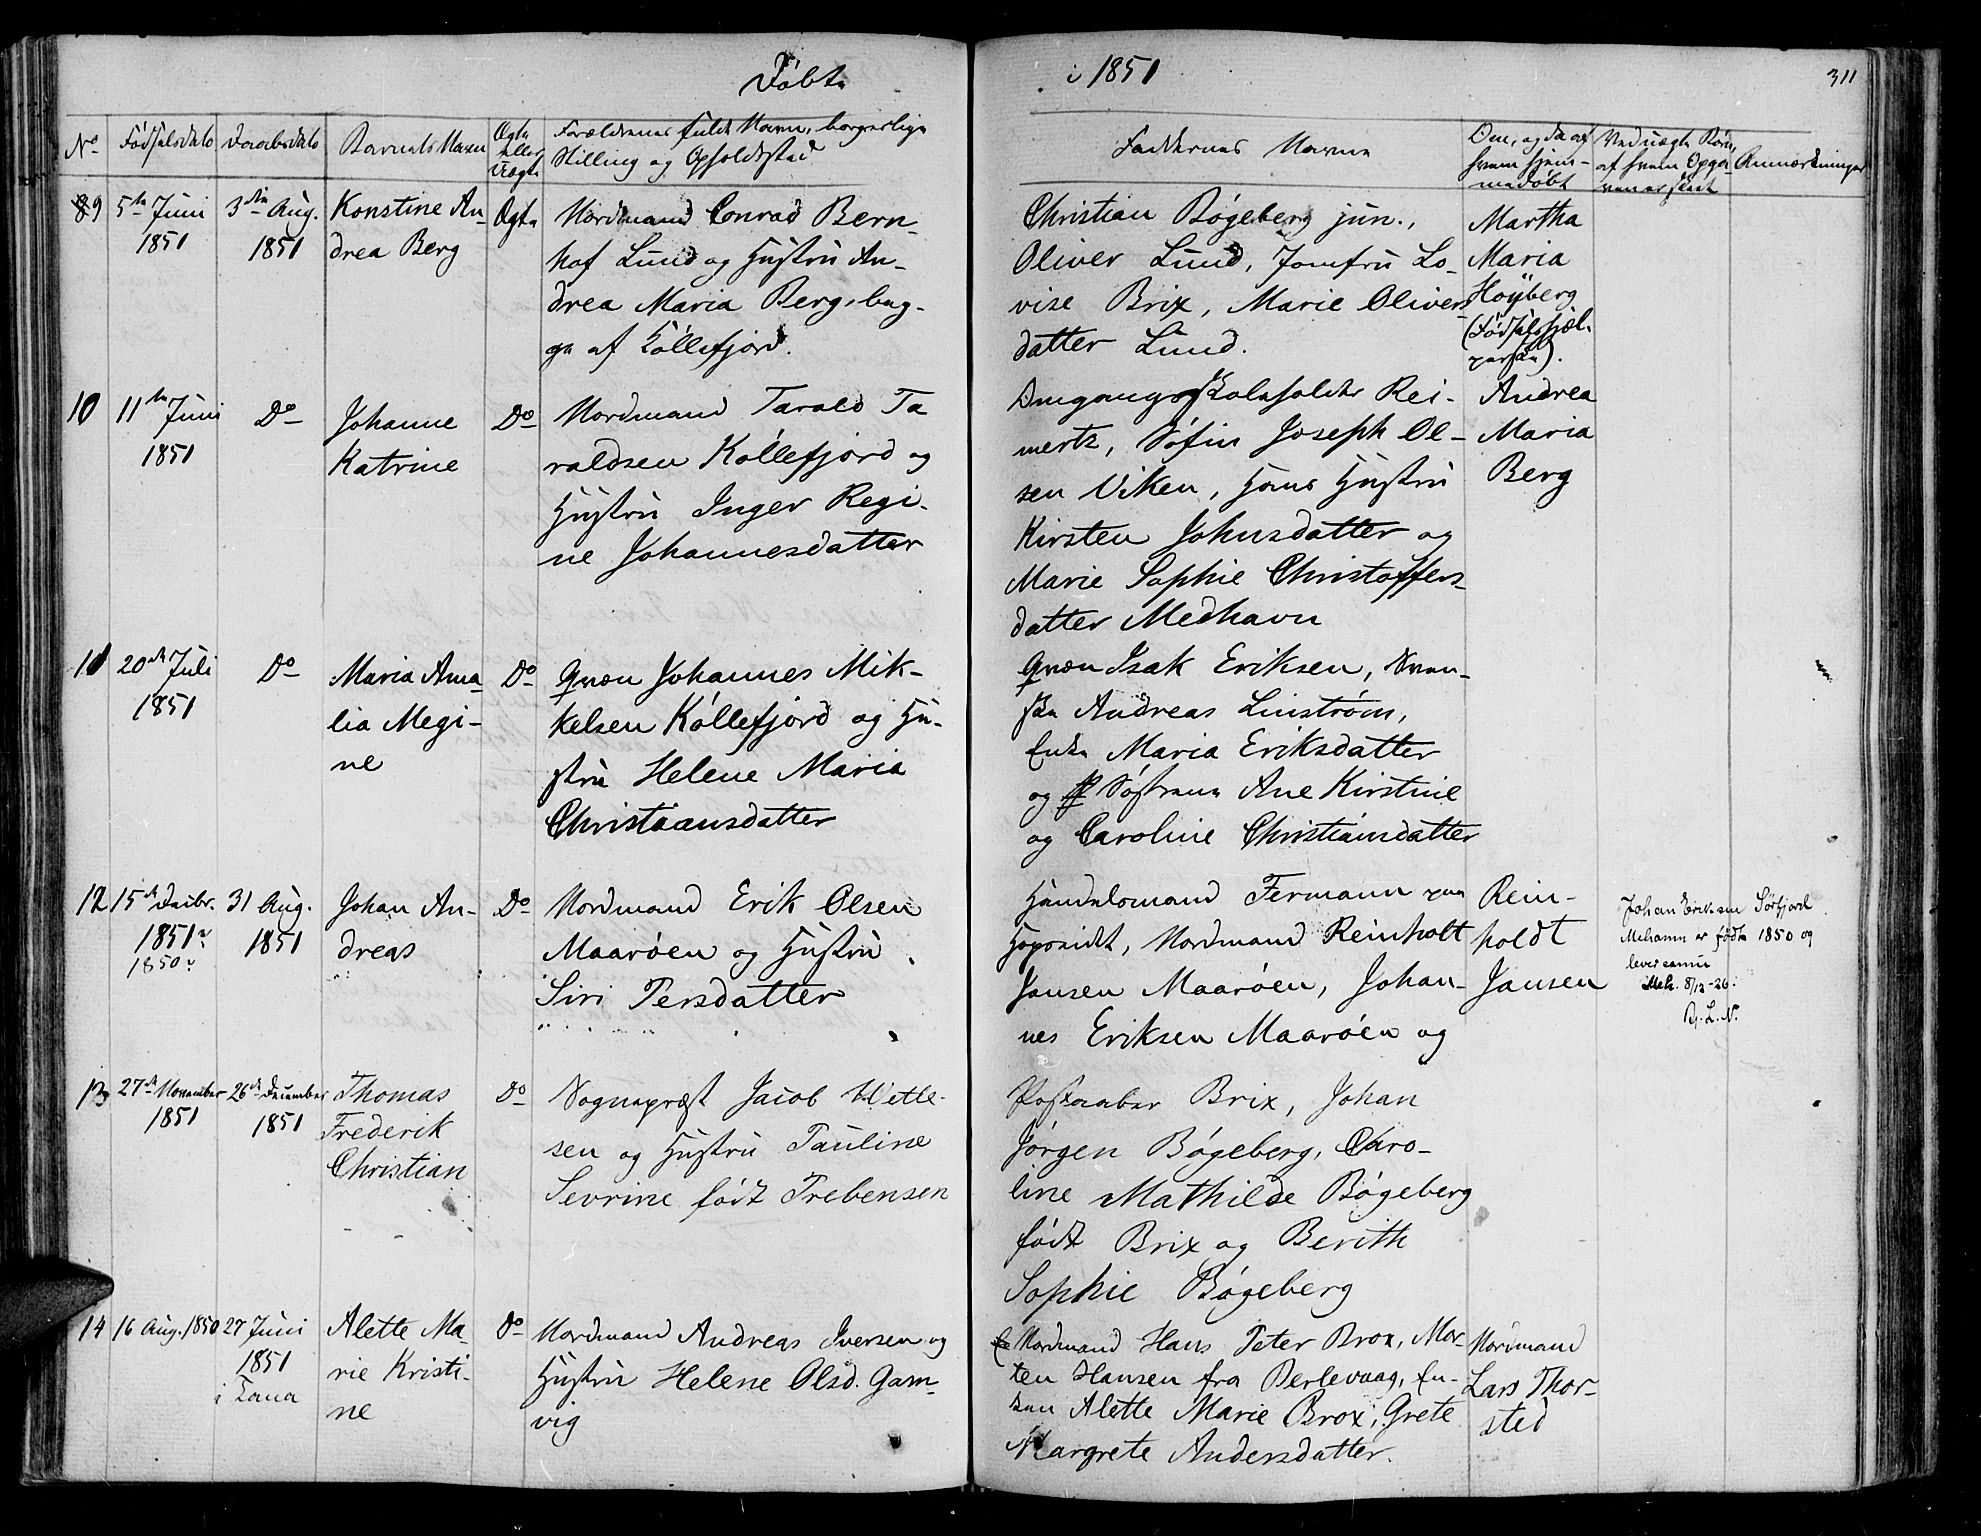 Døbte
i 1851
311
No
Fødselsdato
Daabsdato
Barnets Navn
Ægte
eller
Uægte
Forældrenes fulde Navn, borgerlige
Stilling og Opholdsted
Faddernes Navne
Om, og da af
hvem hjem-
medøbt
Ved uægte Børn,
af hvem Opga-
ven er skeet
Anmærkninger
9
5te Juni
1851
3die Aug.
1851
Konstine An-
drea Berg
Ægte
Nordmand Conrad Bern-
hof Lund og Hustru An-
drea Maria Berg, beg-
ge af Kjøllefjord.
Christian Bøgeberg jun.,
Oliver Lund, Jomfru Lo-
vise Brix, Marie Olivers
datter Lund.
Martha
Maria
Høyberg
(Fødselshjæl-
perske).
10
11te Juni
1851
Do
Johanne
Katrine
Do
Nordmand Tarald Ta
raldsen Køllefjord og
Hustru Inger Regi-
ne Johannesdatter
Omgangsskoleholder Rei-
mertz, Søfin Joseph Ol-
sen Viken, Hans Hustru
Kirsten Johnsdatter og
Marie Sophie Christoffers
datter Medhavn
Andrea
Maria
Berg
11
20de Juli
1851
Do
Maria Ama-
lia Megi-
ne
Do
Qvæn Johannes Mik-
kelsen Køllefjord og Hu-
stru Helene Maria
Christiansdatter
Qvæn Isak Eriksen, Sven-
ske Andreas Linstrøm,
Enke Maria Eriksdatter
og Søstrene Ane Kirstine
og Caroline Christiansdatter
12
15de Decbr.
1851?
1850?
31 Aug.
1851
Johan An-
dreas
Do
Nordmand Erik Olsen
Maarøen og Hustru
Siri Persdatter
Handelsmand Fermann paa
Hopseidet, Nordmand Reinholt
Jansen Maarøen, Johan-
nes Eriksen Maarøen og
Rein-
holdt
Jansen
Johan Eriksen Sørfjord
Mehamn er født 1850 og
lever
Meh. 8/12-26.
Bj. L. N.
13
27de November
1851
26de December
1851
Thomas
Frederik
Christian
Do
Sognepræst Jacob Wetle-
sen og Hustru Pauline
Sevrine født Trebensen
Postaaber Brix, Johan
Jørgen Bøgeberg, Caro-
line Mathilde Bøgeberg
født Brix og Berith
Sophie Bøgeberg
14
16 Aug. 1850
27 Juni
1851
i Tana
Alette Ma-
rie Kristi-
ne
Do
Nordmand Andreas Iversen og
Hustru Helene Olsd. Gam-
vig
Nordmand Hans Peter Brox, Mor-
ten Hansen fra Berlevaag, En-
ken Alette Marie Brox, Grete
Margrete Andersdatter.
Nordmand
Lars Thor-
sted